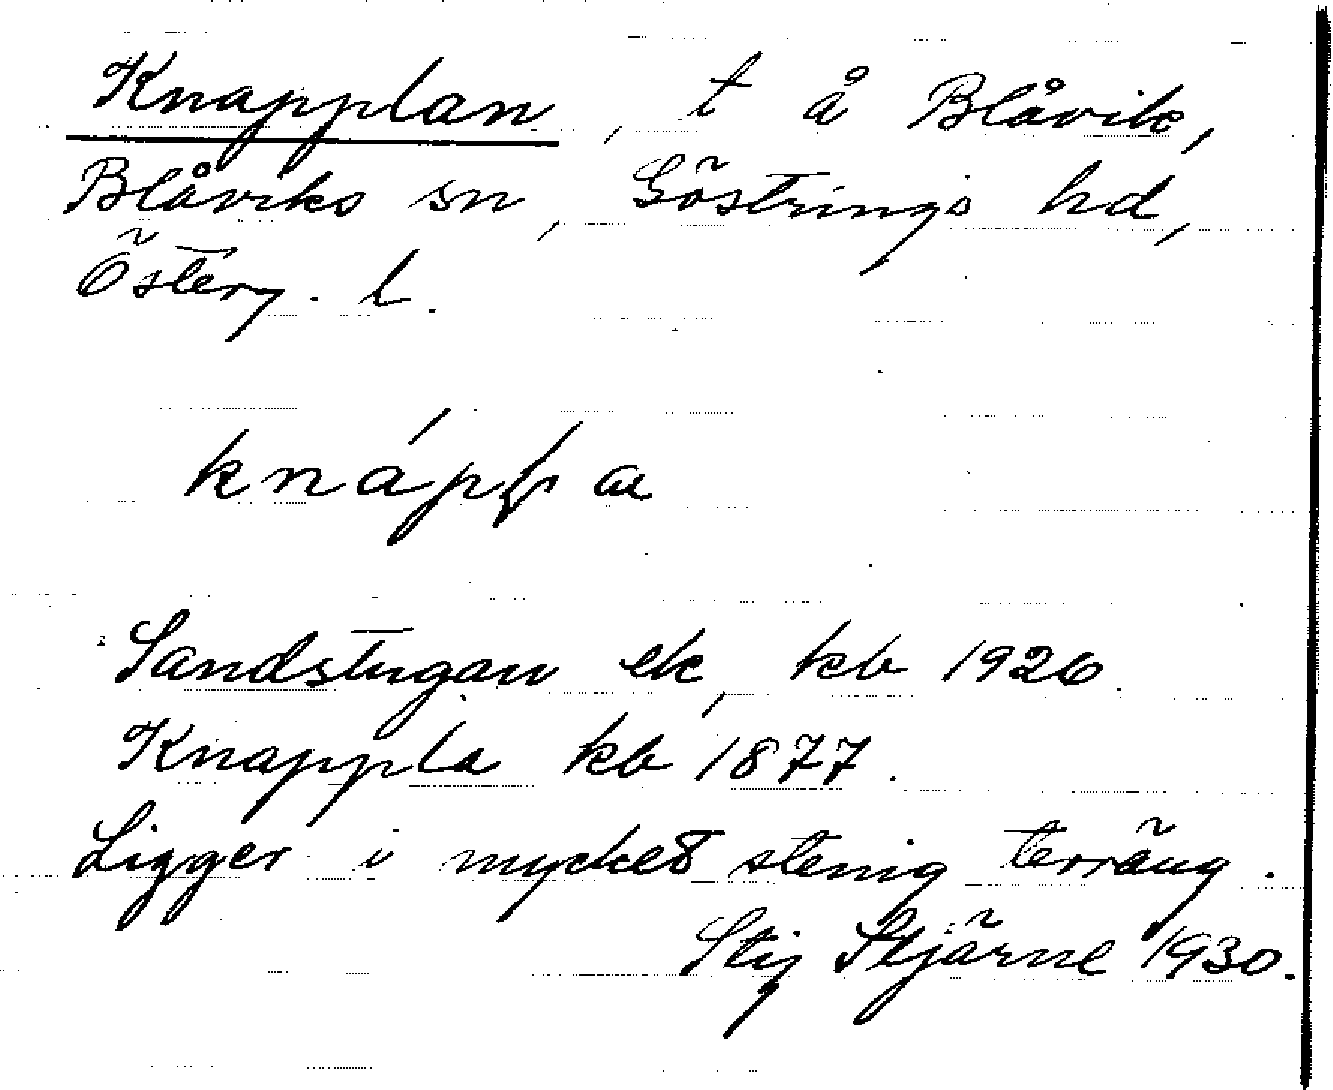 Knapplan, t å Blåvik,
Blåviks sn, Göstrings hd,
Österg. l.
Sandstugan ek, kb 1926.
Knappla kb 1877.
Ligger i mycket stenig terräng.
Stig Stjärne 1930.